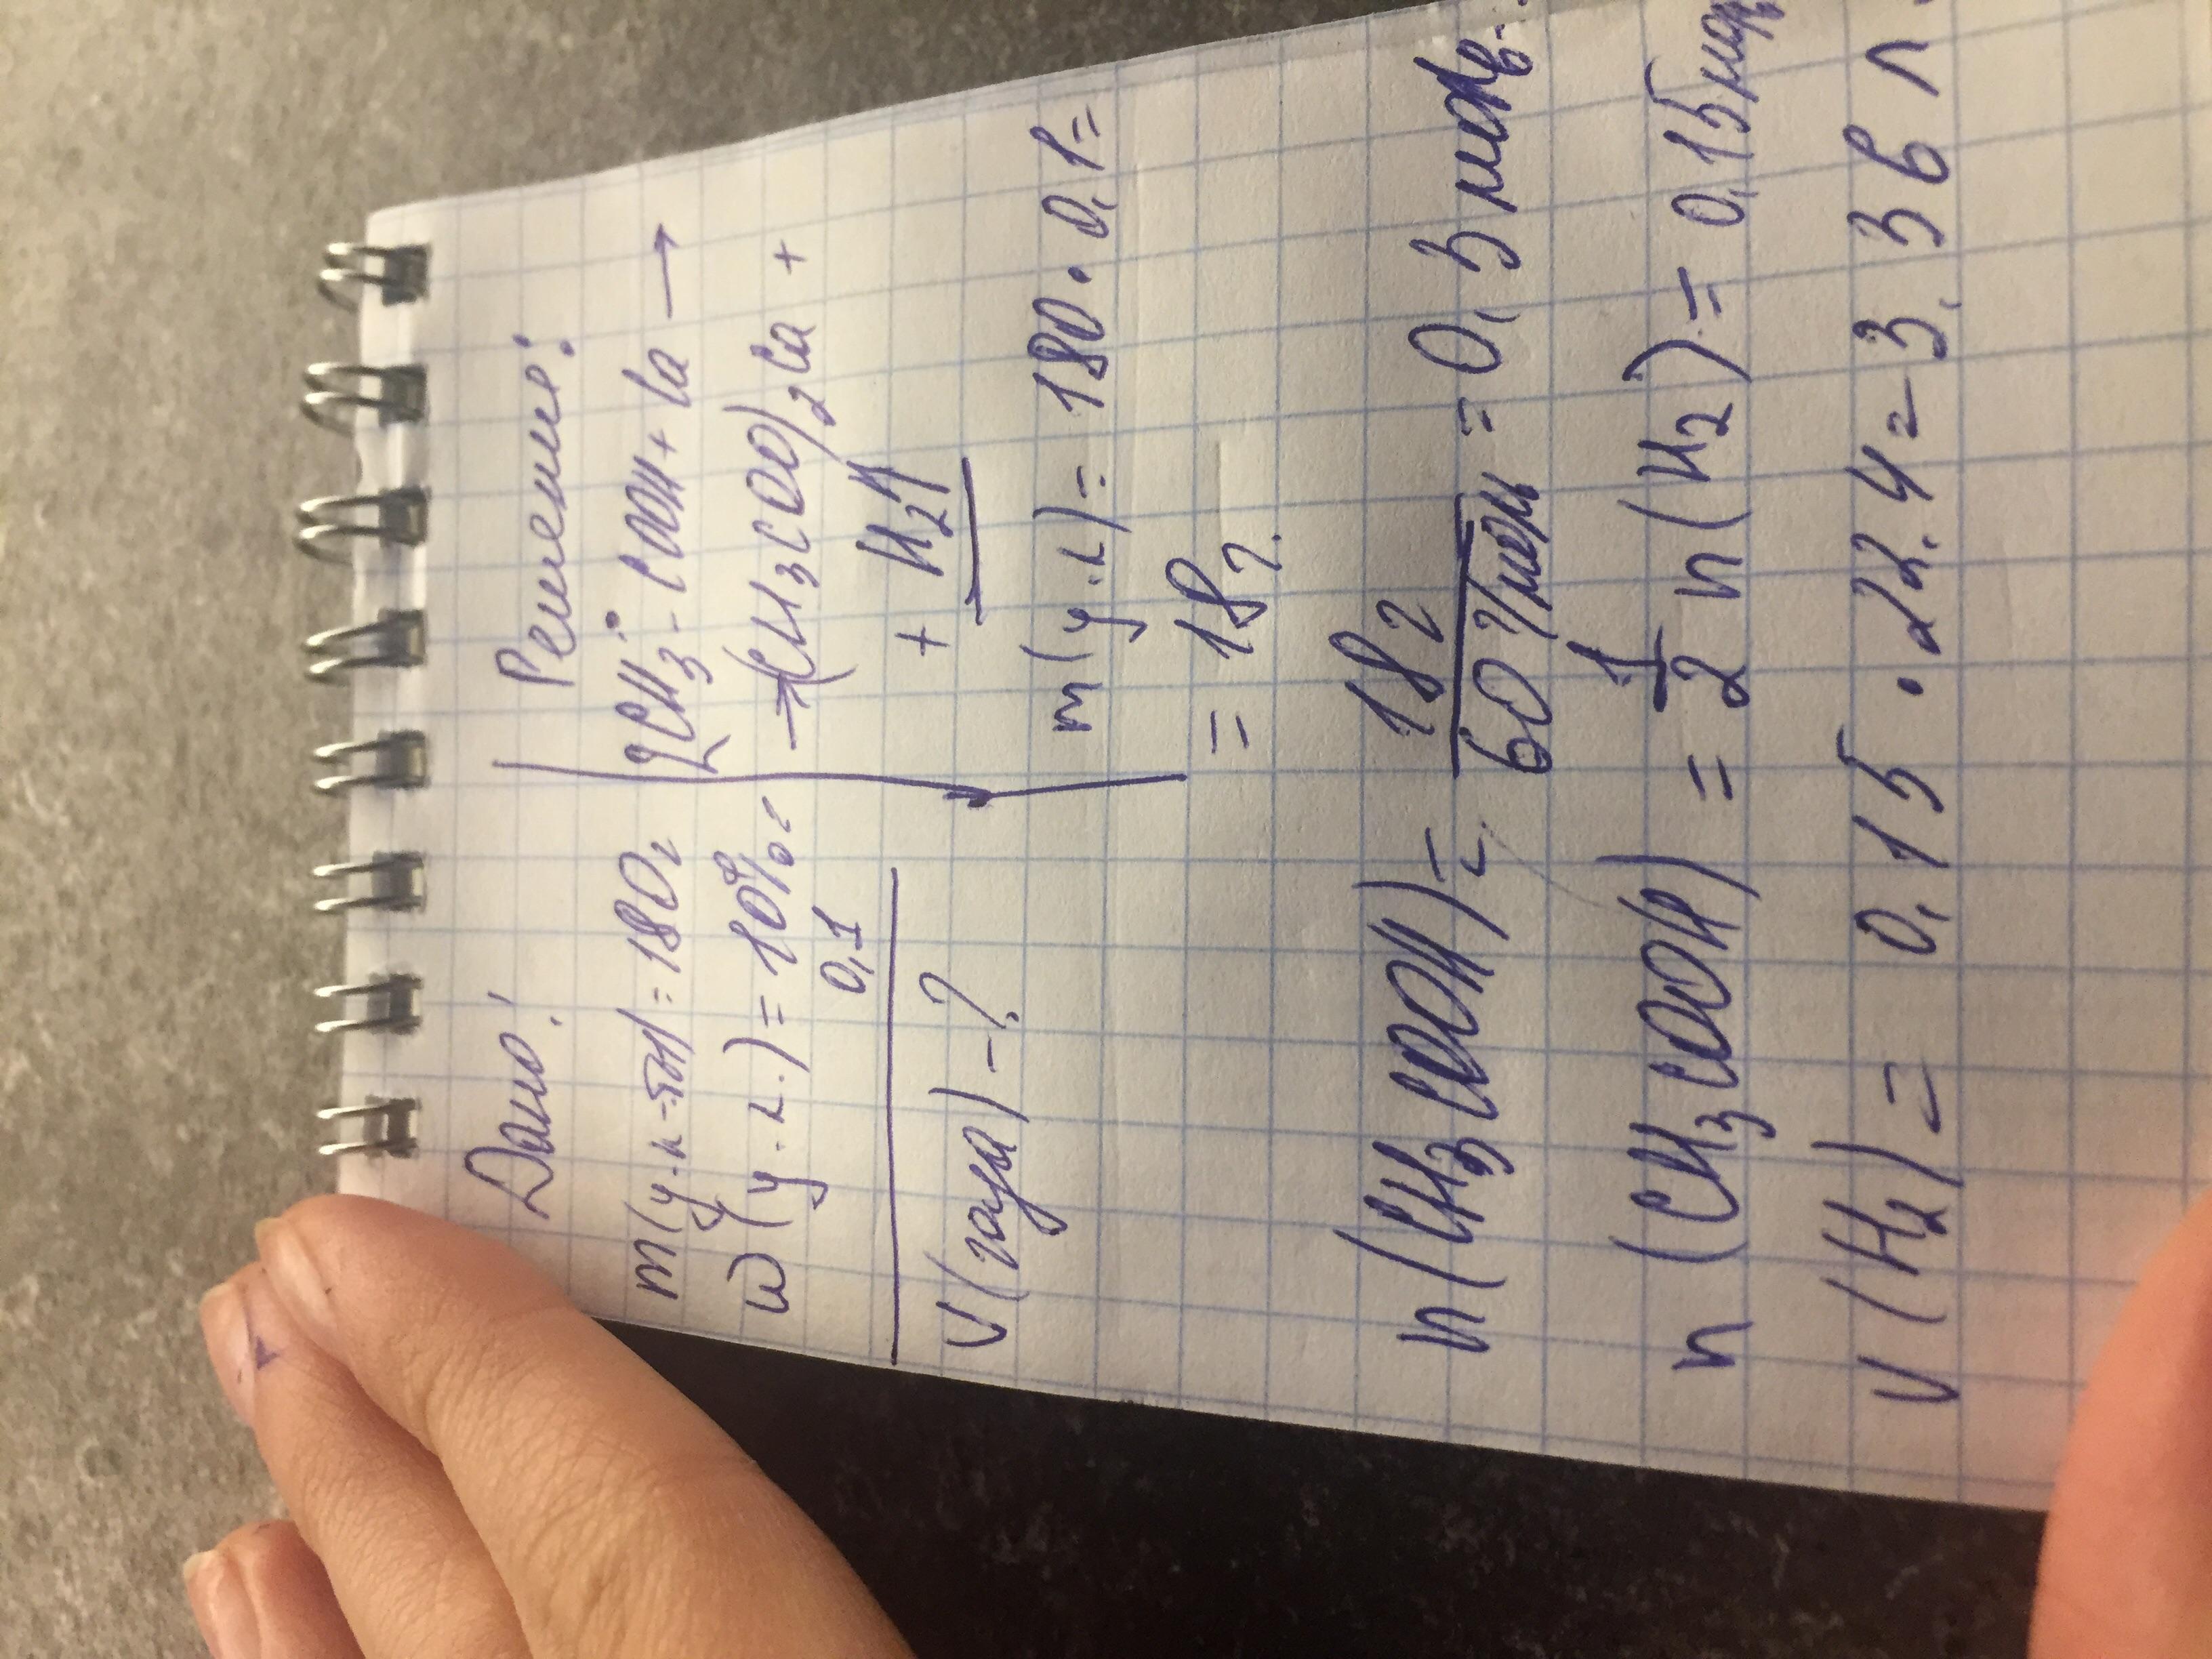 Дано:
m(у.к-ты)=180г
w(у.к.)=10%=
0,1
V(газа)-?
Решение:
2CH3-COOH+Ca→
→(CH3COO)2Ca+
+H2↑
m(у.к)=180·0,1=
=18г.
n(CH3COOH)=18г/60г/моль=0,3моль.
n(CH3COOH)=1/2n(H2)=0,15моль
V(H2)=0,15·22,4=3,36л.